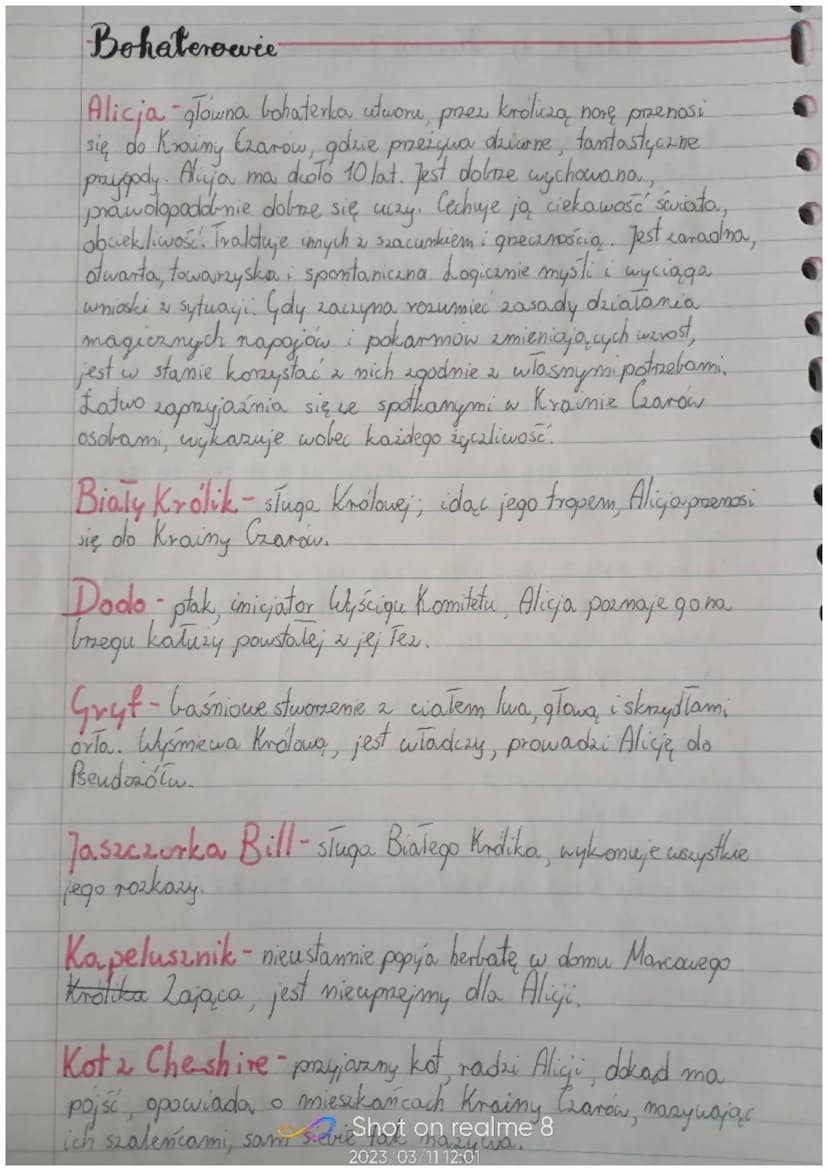 Bohaterowie
Alicja - główna bohaterka utworu, przez króliczą norę przenosi
się do Krainy Czarów, gdzie przeżywa dziwne, fantastyczne
przygody. Alicja ma około 10 lat. Jest dobrze wychowana,
prawdopodobnie dobrze się uczy. Cechuje ją ciekawość świata,
dociekliwość. Traktuje innych z szacunkiem i grzecznością. Jest zaradna,
otwarta, towarzyska i spontaniczna. Logicznie myśli i wyciąga
wnioski z sytuacji. Gdy zaczyna rozumieć zasady działania
magicznych napojów i pokarmów zmieniających wzrost,
jest w stanie korzystać z nich zgodnie z własnymi potrzebami.
Łatwo zaprzyjaźnia się ze spotkanymi w Krainie Czarów
osobami, wykazuje wobec każdego życzliwość.
Biały Królik - sługa Królowej; idąc jego tropem, Alicja przenosi
się do Krainy Czarów.
Dodo - ptak, inicjator Wyścigu Komitetu, Alicja poznaje go na
brzegu kałuży powstałej z jej łez.
Gryf - baśniowe stworzenie z ciałem lwa, głową i skrzydłami
orła. Wyśmiewa Królową, jest władczy, prowadzi Alicję do
Pseudożółw.
Jaszczurka Bill - sługa Białego Królika, wykonuje wszystkie
jego rozkazy.
Kapelusznik - nieustannie popija herbatę w domu Marcowego
Królika Zająca, jest nieuprzejmy dla Alicji.
Kot z Cheshire - przyjazny kot, radzi Alicji, dokąd ma
pójść, opowiada o mieszkańcach Krainy Czarów, nazywając
ich szaleńcami, sam siebie tak nazywa.
Shot on realme 8
2023/03/11 12:01